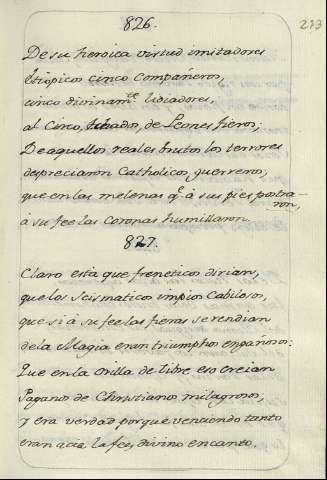 826.
273
De su heroica virtud imitadores
Etiopicos cinco Compañeros,
cinco divinam.te lidiadores,
al Circo, echados, de Leones fieros;
De aquellos reales brutos los terrores
despreciaron Catholicos guerreros,
que en las melenas q.e à sus pies postra-
ron,
à su fee las Coronas humillaron.
827.
Claro está que freneticos dirian,
que los Scismaticos impios Cabilosos,
que si à su fee las fieras se rendian
de la Magia eran triumphos engañosos:
Que en la Orilla de Tibre eso creian
Paganos de Christianos milagrosos,
y era verdad porque venciendo tanto
eran acia la fee, divino encanto.